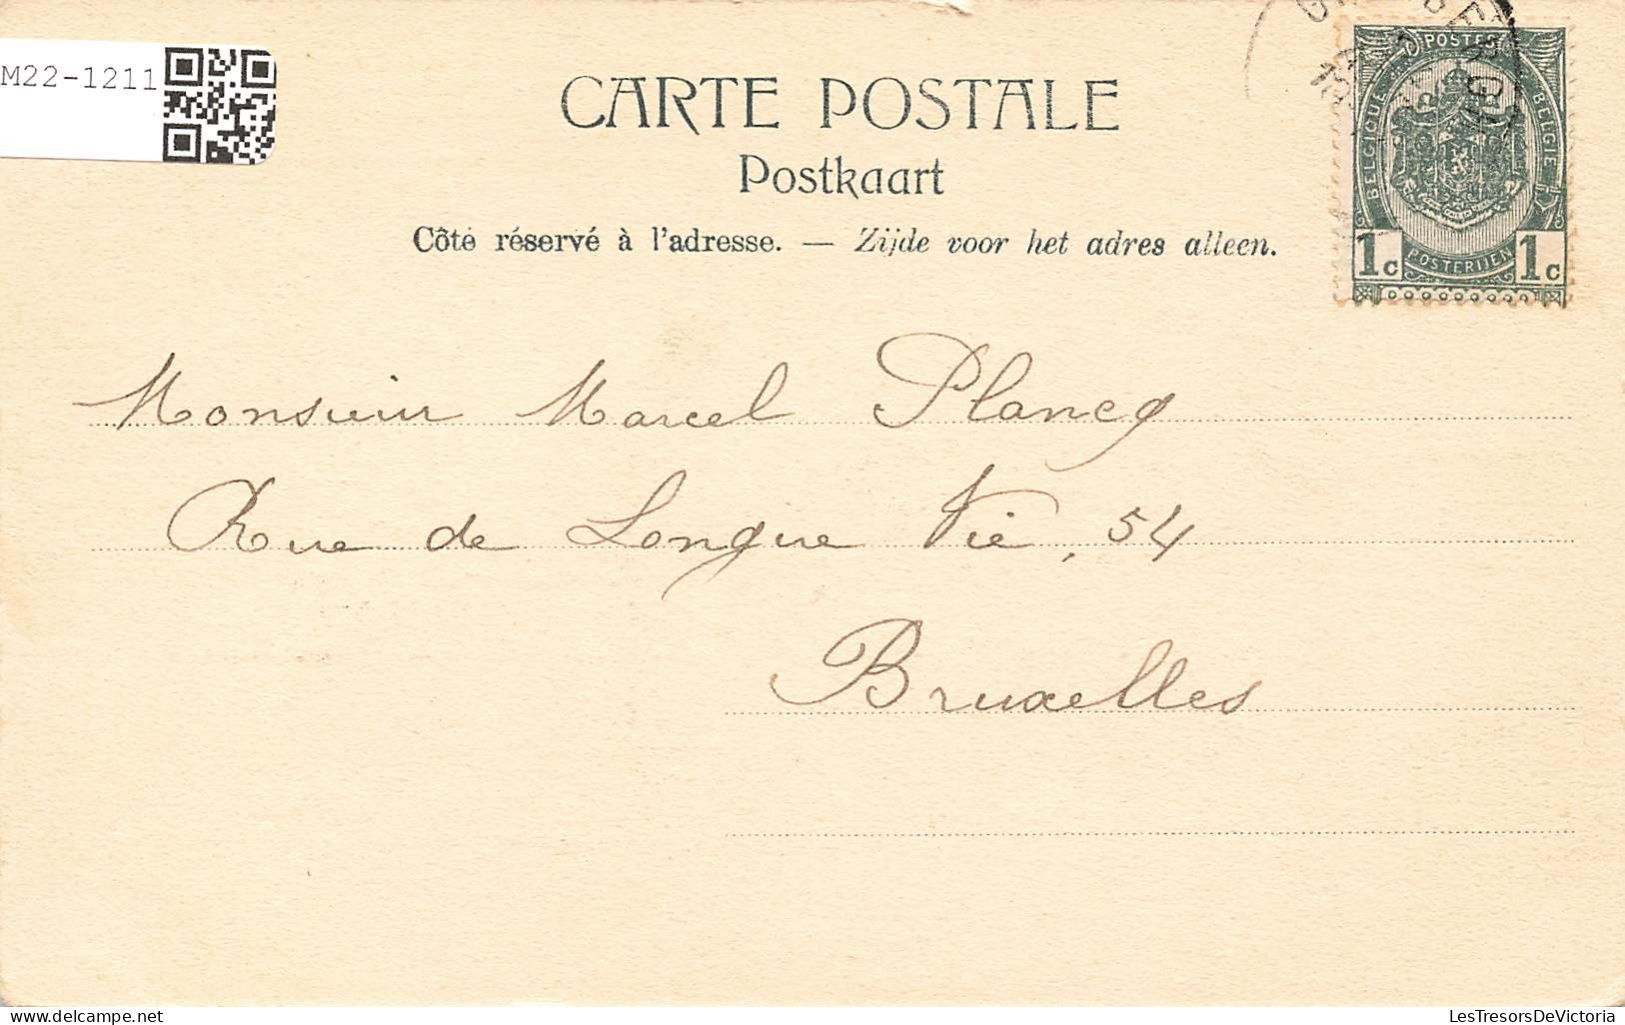 M22-1211
CARTE POSTALE
Postkaart
Côté réservé à l'adresse. — Zijde voor het adres alleen.
POSTES
BELGIQUE
BELGIE
POSTERIJEN
1c 1c
Monsieur Marcel Plancq
Rue de Longue Vie, 54
Bruxelles
LesTresorsDeVictoria
www.delcampe.net